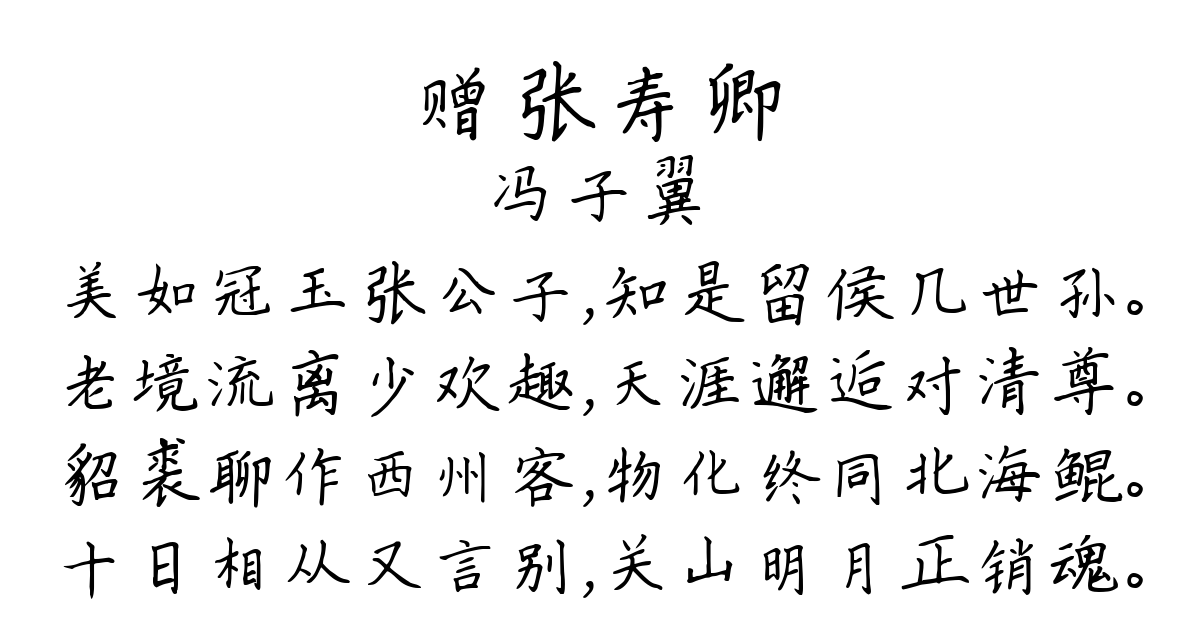 赠张寿卿
冯子翼
美如冠玉张公子,知是留侯几世孙。
老境流离少欢趣,天涯邂逅对清尊。
貂裘聊作西州客,物化终同北海鲲。
十日相从又言别,关山明月正销魂。